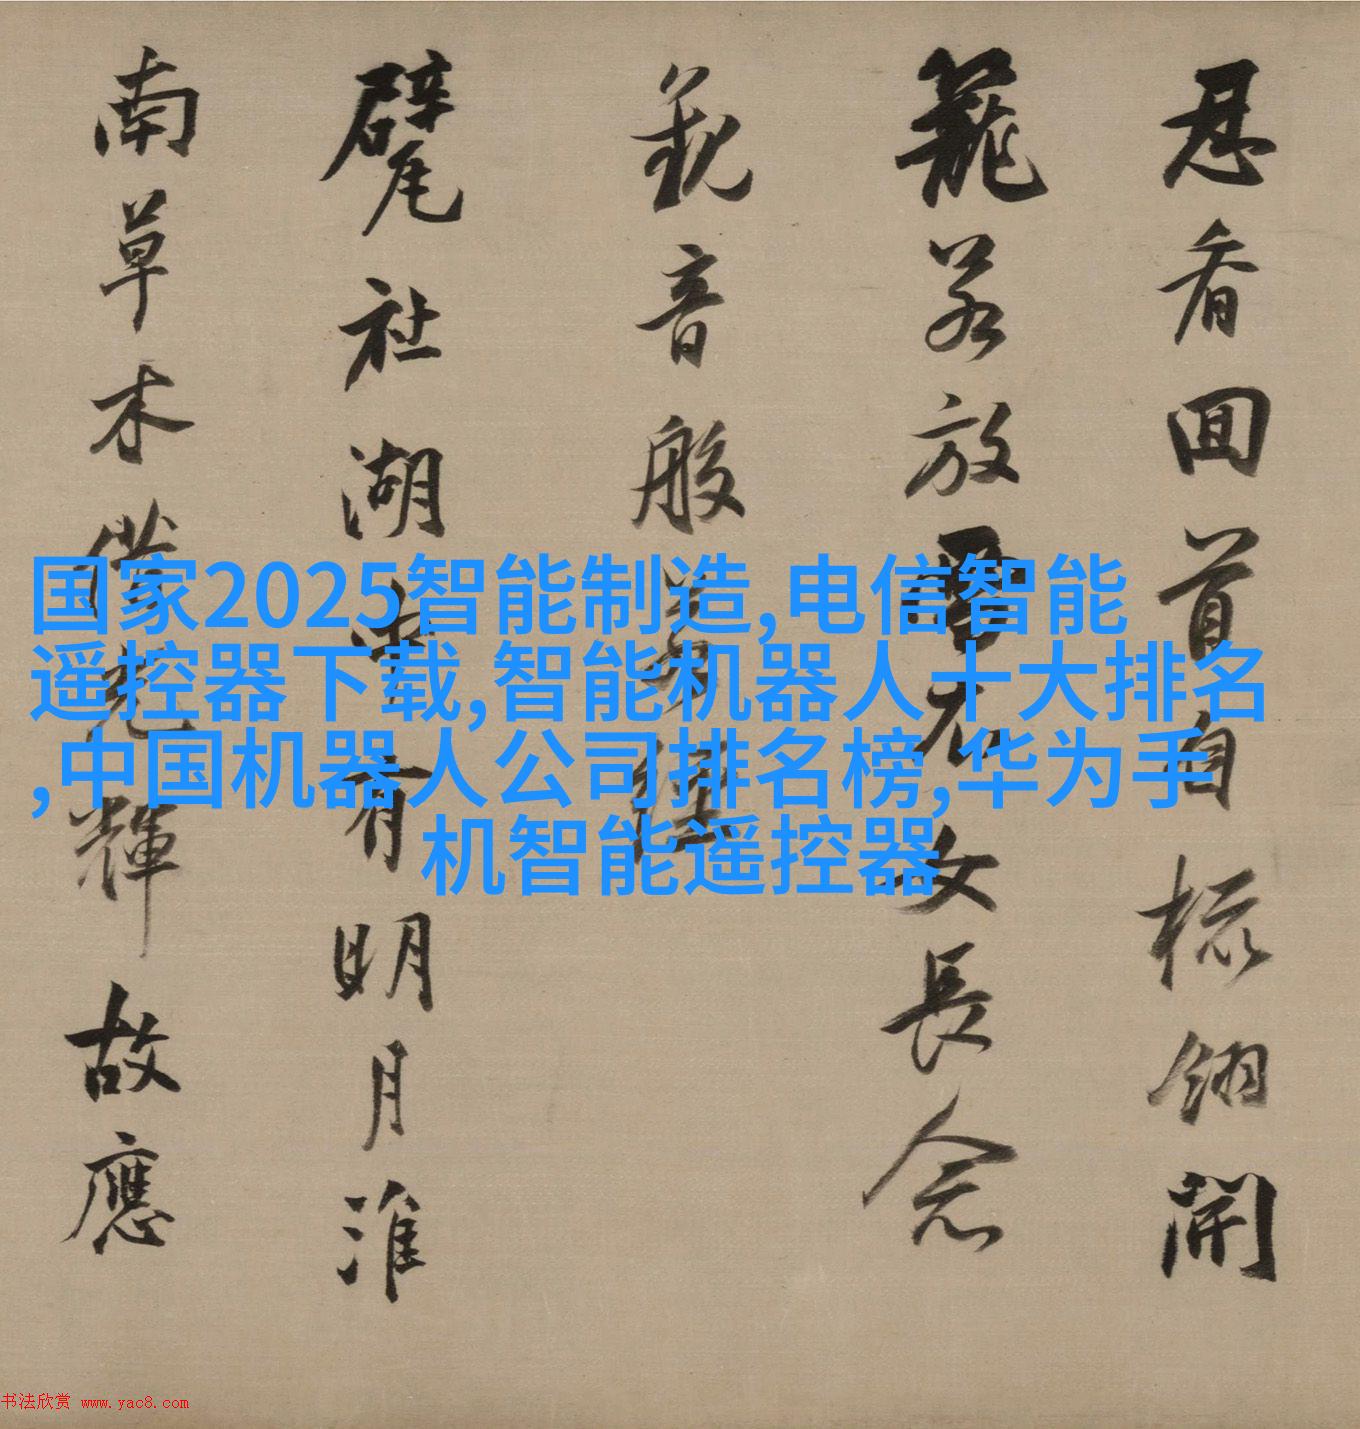 忍看囬首自梳翎開
籠若放雪衣女長念
觀音般若經
甓社湖中有明月淮
南草木借光輝故應
国家2025智能制造,电信智能
遥控器下载,智能机器人十大排名
,中国机器人公司排名榜,华为手
机智能遥控器
书法欣赏 www.yac8.com